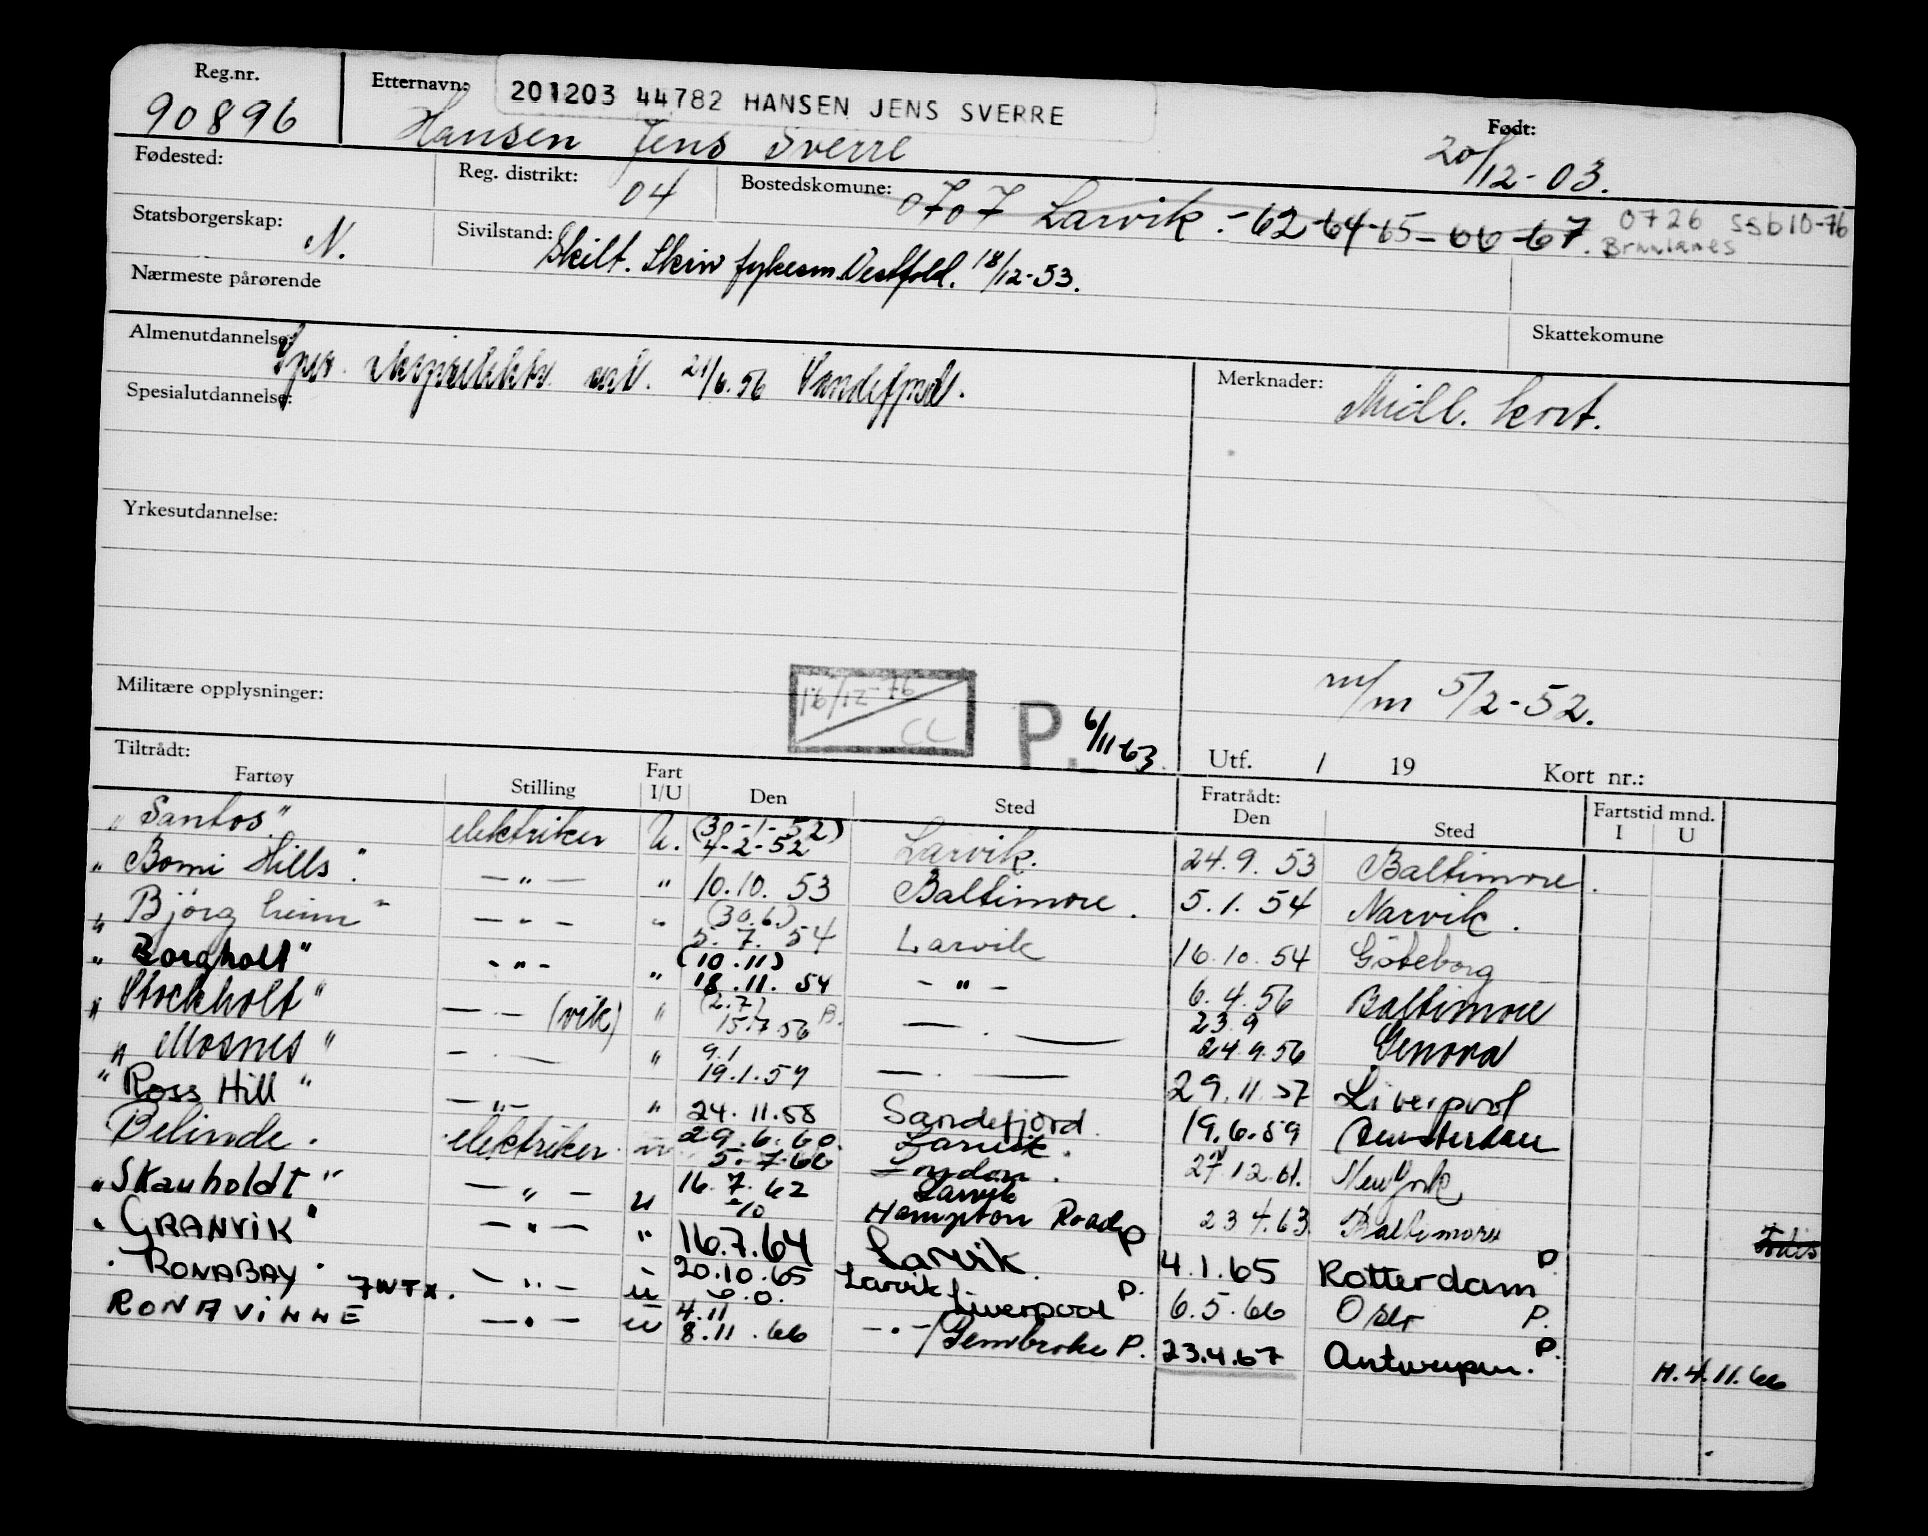 Reg.nr.
90896
Etternavn:
201203 44782 HANSEN JENS SVERRE
Hansen Jens Sverre
Født:
20/12-03.
Fødested:
Reg. distrikt:
04
Bostedskomune:
0707 Larvik.-62-64-65-66-67.
0726 SSb10-76
Brunlanes
Statsborgerskap:
N.
Sivilstand:
Skilt. Skriv fylkesm. Vestfold. 18/12-53.
Nærmeste pårørende
Skattekomune
Almenutdannelse:
21/6.56 Sandefjord.
Merknader:
Midl. kort.
Spesialutdannelse:
Yrkesutdannelse:
m/m 5/2-52.
Militære opplysninger:
16/12-76
CL
P. 6/11-63
Utf. / 19 Kort nr.:
Tiltrådt:
Fartøy Stilling Fart I/U Den Sted Fratrådt: Den Sted Fartstid mnd. I U
"Santos" elektriker U. (30-1-52) 4-2-52 Larvik. 24.9.53 Baltimore.
"Bomi Hills". —"— " 10.10.53 Baltimore. 5.1.54 Narvik.
"Bjørgheim" -"- " (30.6) 5.7.54 Larvik 16.10.54 Göteborg
"Borgholt" -"- " (10.11) 18.11.54 -"- 6.4.56 Baltimore
"Stockholt" —.— (vik) " (2.7) 15.7.56 B. —.— 23.9 24.9.56 Genova
"Mosnes" -.— " 9.1 19.1.57 —.— 29.11.57 Liverpool
"Ross Hill" —"— " 24.11.58 Sandefjord. 19.6.59 Amsterdam
Belinde. elektriker u 29.6.60. 5.7.60 Larvik. London. 27.12.61. New York
"Skauholdt" —"— u 16.7.62 2/10 Larvik Hampton Roads P 23 4.63. Baltimore
"GRANVIK" —"— " 16.7.64 Larvik. 4.1.65 Rotterdam P
"RONABAY" —"— u 20.10.65 Larvik Liverpool P. 6.5.66 Oslo P.
RONAVINNE 7WTX. —"— u 4.11 8.11.66 —"— / Pembroke P. 23.4.67 Antwerpen. P. H.4.11.66